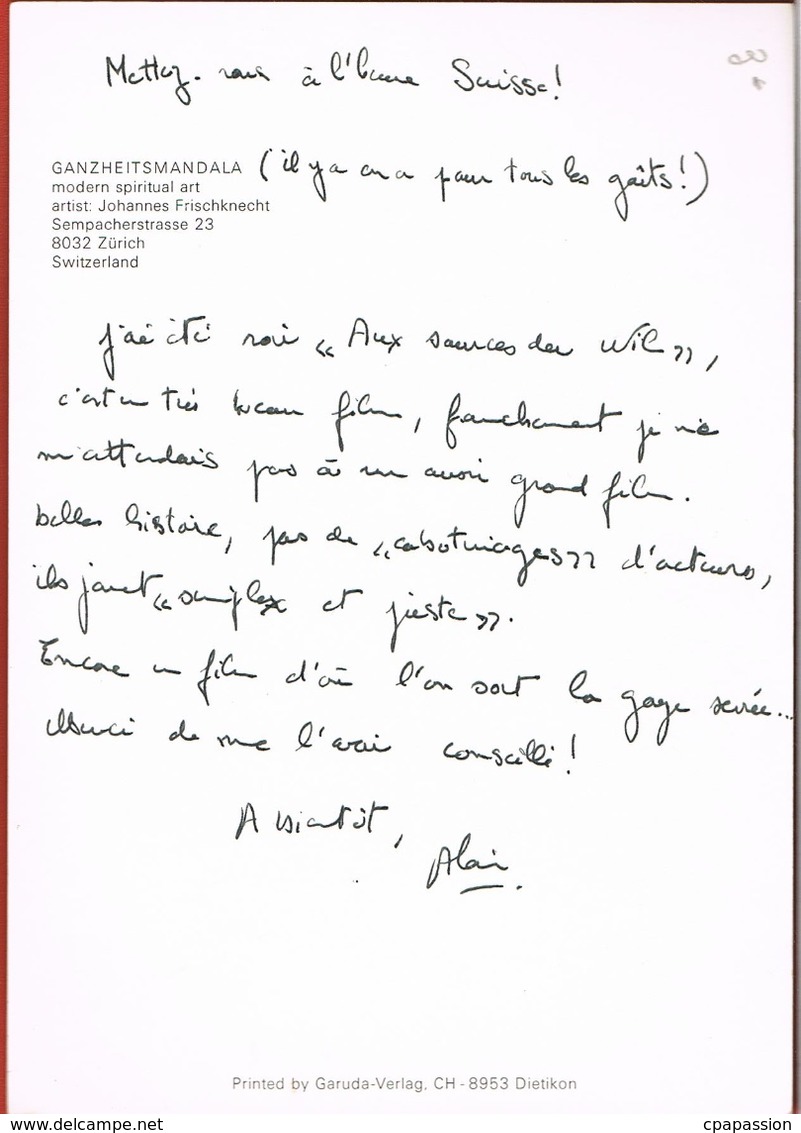 Mettez-vous à l'heure Suisse!
(il y a en a pour tous les goûts!)
GANZHEITSMANDALA
modern spiritual art
artist: Johannes Frischknecht
Sempacherstrasse 23
8032 Zürich
Switzerland
J'ai été voir « Aux sources du Nil »,
c'est un très beau film, franchement je ne
m'attendais pas à un aussi grand film.
belles histoire, pas de « cabotinages » d'acteurs,
ils jouent « simplex et juste ».
Encore un film d'où l'on sort la gorge serrée...
Merci de me l'avoir conseillé!
A bientôt,
Alain.
Printed by Garuda-Verlag, CH-8953 Dietikon
www.delcampe.net
cpapassion